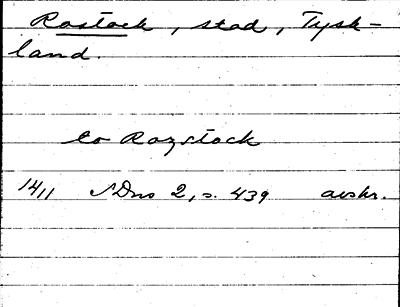 Rostock, stad, Tysk-
land.
to Rozstock
14/11 SDns 2, s. 439 avskr.